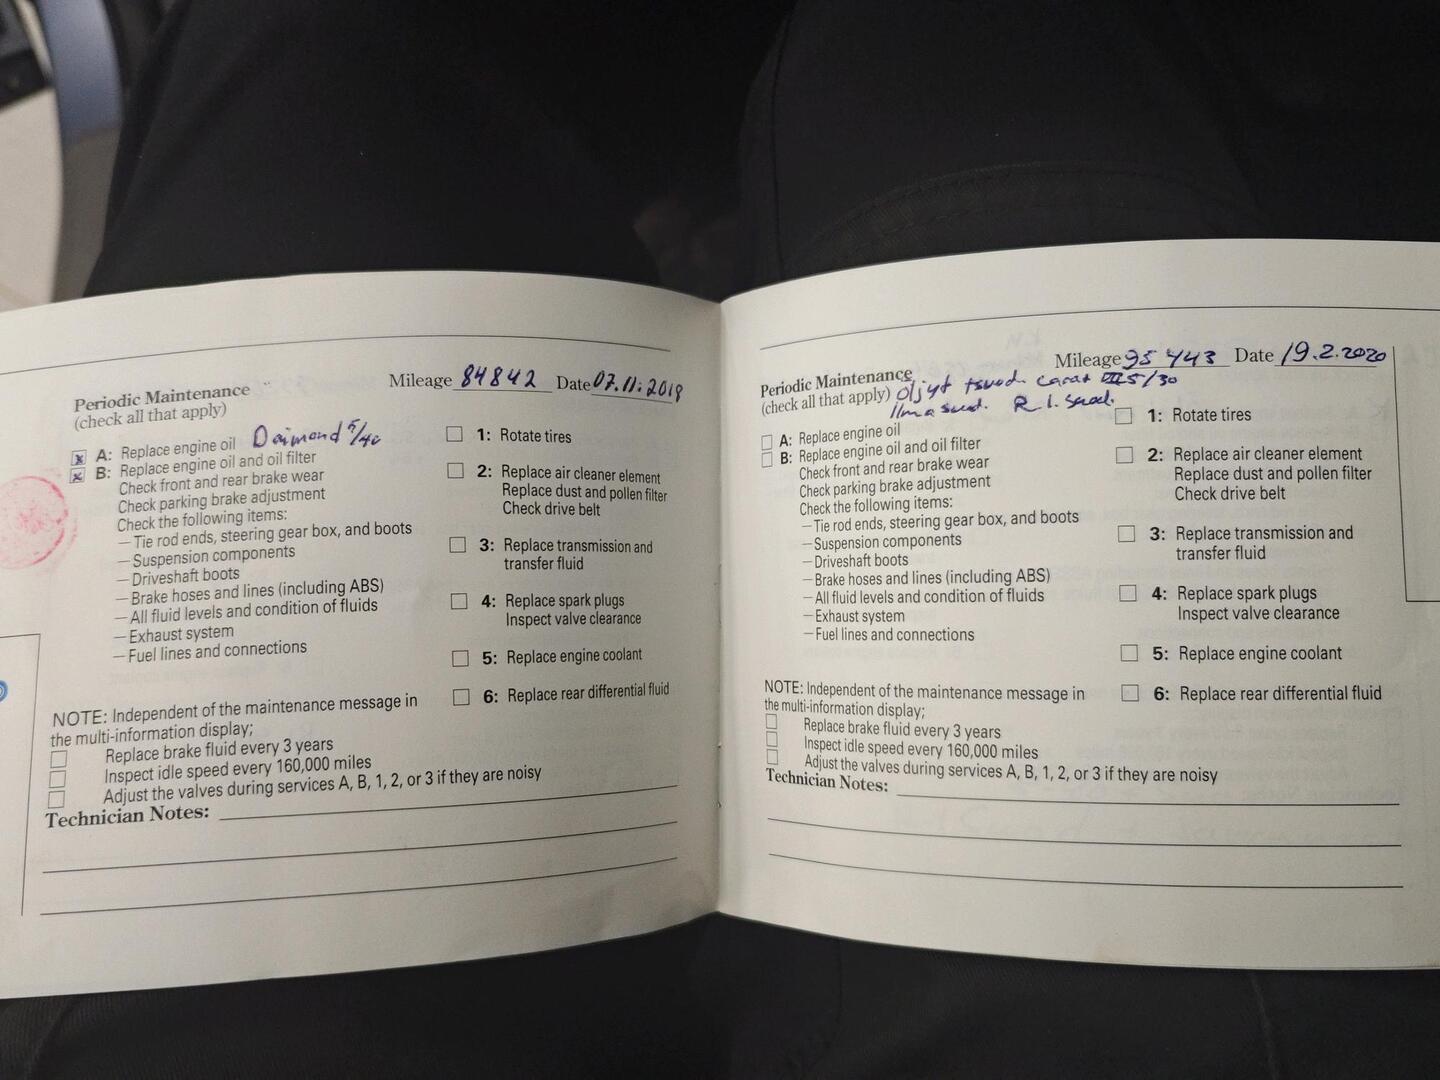 Mileage 84842 Date 07.11.2019
Periodic Maintenance
(check all that apply)
A: Replace engine oil Daimond 5/40
B: Replace engine oil and oil filter
Check front and rear brake wear
Check parking brake adjustment
Check the following items:
—Tie rod ends, steering gear box, and boots
—Suspension components
—Driveshaft boots
—Brake hoses and lines (including ABS)
—All fluid levels and condition of fluids
—Exhaust system
—Fuel lines and connections
1: Rotate tires
2: Replace air cleaner element
Replace dust and pollen filter
Check drive belt
3: Replace transmission and
transfer fluid
4: Replace spark plugs
Inspect valve clearance
5: Replace engine coolant
6: Replace rear differential fluid
NOTE: Independent of the maintenance message in
the multi-information display;
Replace brake fluid every 3 years
Inspect idle speed every 160,000 miles
Adjust the valves during services A, B, 1, 2, or 3 if they are noisy
Technician Notes:
Mileage 95443 Date 19.2.2020
Periodic Maintenance
(check all that apply) Öljyt 5/30
A: Replace engine oil
B: Replace engine oil and oil filter
Check front and rear brake wear
Check parking brake adjustment
Check the following items:
—Tie rod ends, steering gear box, and boots
—Suspension components
—Driveshaft boots
—Brake hoses and lines (including ABS)
—All fluid levels and condition of fluids
—Exhaust system
—Fuel lines and connections
1: Rotate tires
2: Replace air cleaner element
Replace dust and pollen filter
Check drive belt
3: Replace transmission and
transfer fluid
4: Replace spark plugs
Inspect valve clearance
5: Replace engine coolant
6: Replace rear differential fluid
NOTE: Independent of the maintenance message in
the multi-information display;
Replace brake fluid every 3 years
Inspect idle speed every 160,000 miles
Adjust the valves during services A, B, 1, 2, or 3 if they are noisy
Technician Notes: